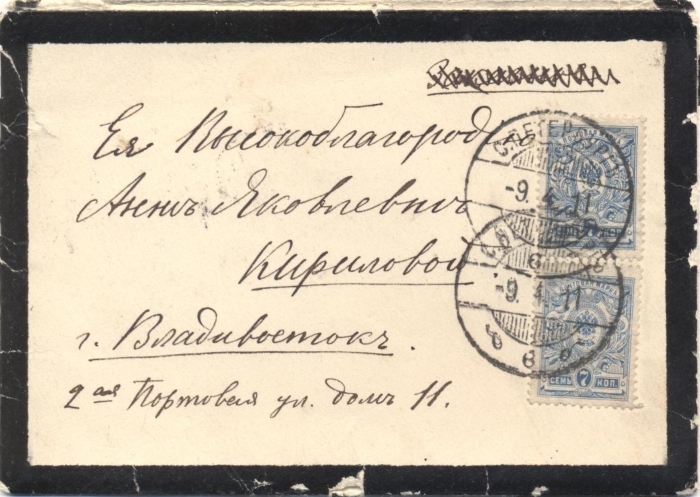 Ея Высокоблагород
Аннѣ Яковлевнѣ
Кириловой
г. Владивостокъ.
2ая Портовая ул. домъ 11.
С.ПЕТЕРБУРГЪ
-9.4.11
-9.4.11
СЕМЬ 7 КОП.